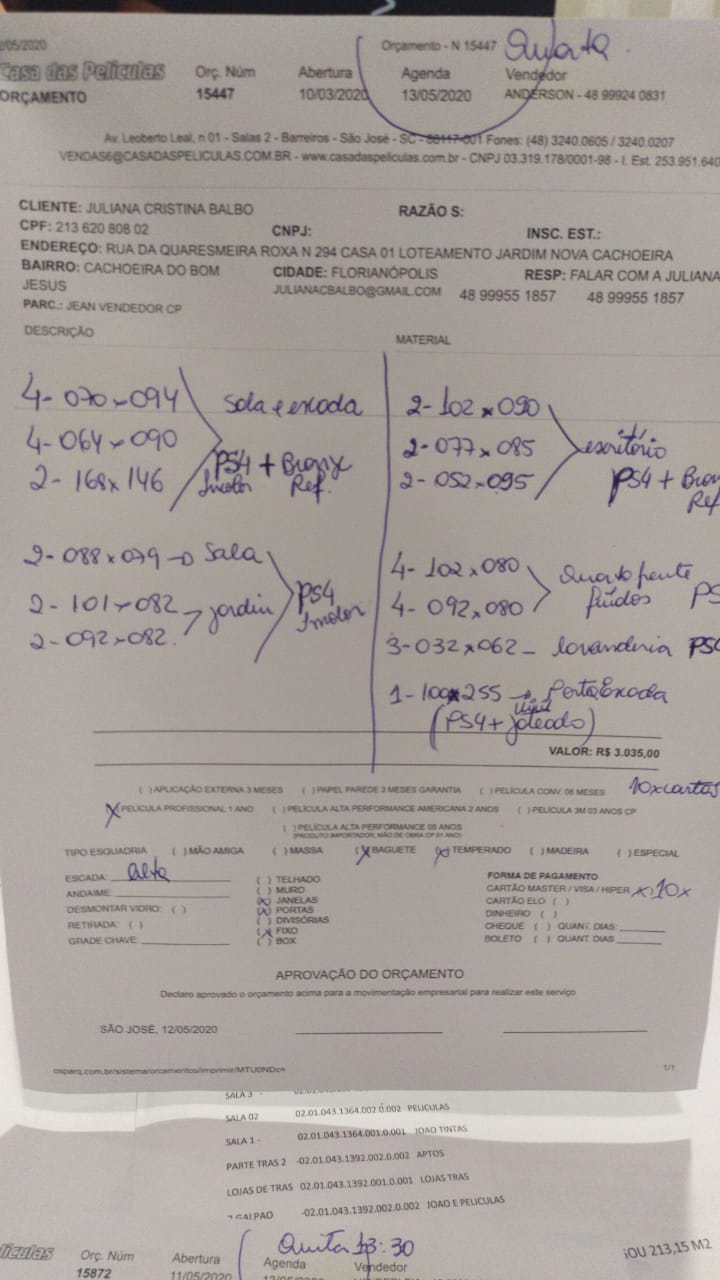 /05/2020 Orçamento - N 15447 Quarta.
Casa das Películas Orç. Núm Abertura Agenda Vendedor
ORÇAMENTO 15447 10/03/2020 13/05/2020 ANDERSON - 48 99924 0831
Av. Leoberto Leal, n 01 - Salas 2 - Barreiros - São José - SC - 88117-001 Fones: (48) 3240.0605 / 3240.0207
VENDAS6@CASADASPELICULAS.COM.BR - www.casadaspeliculas.com.br - CNPJ 03.319.178/0001-98 - I. Est. 253.951.640
CLIENTE: JULIANA CRISTINA BALBO RAZÃO S:
CPF: 213 620 808 02 CNPJ: INSC. EST.:
ENDEREÇO: RUA DA QUARESMEIRA ROXA N 294 CASA 01 LOTEAMENTO JARDIM NOVA CACHOEIRA
BAIRRO: CACHOEIRA DO BOM CIDADE: FLORIANÓPOLIS RESP: FALAR COM A JULIANA
JESUS JULIANACBALBO@GMAIL.COM 48 99955 1857 48 99955 1857
PARC.: JEAN VENDEDOR CP
DESCRIÇÃO MATERIAL
4- 070x094 Sala e escada
4- 064x090
2- 168x146 PS4 + Bronze
Incolor Ref.
2- 088x079 → Sala
2- 101x082 jardin
2- 092x082.
PS4
Incolor
2- 102x090
2- 077x085 escritório
2- 052x095 PS4 + Bron
Ref
4- 102x080 Quarto frente
4- 092x080 fundos PS
3- 032x062 - lavanderia PS4
1- 100x255 → Porta Escada
(PS4 + jateado)
VALOR: R$ 3.035,00
( ) APLICAÇÃO EXTERNA 3 MESES ( ) PAPEL PAREDE 3 MESES GARANTIA ( ) PELÍCULA CONV. 06 MESES 10x cartão
(X) PELÍCULA PROFISSIONAL 1 ANO ( ) PELÍCULA ALTA PERFORMANCE AMERICANA 2 ANOS ( ) PELÍCULA 3M 03 ANOS CP
( ) PELÍCULA ALTA PERFORMANCE 05 ANOS
(PRODUTO IMPORTADOR, NÃO DE OBRA CP 01 ANO)
TIPO ESQUADRIA ( ) MÃO AMIGA ( ) MASSA (X) BAGUETE (X) TEMPERADO ( ) MADEIRA ( ) ESPECIAL
ESCADA: alta
ANDAIME:
DESMONTAR VIDRO: ( )
RETIRADA: ( )
GRADE CHAVE:
( ) TELHADO
( ) MURO
(X) JANELAS
(X) PORTAS
( ) DIVISÓRIAS
(X) FIXO
( ) BOX
FORMA DE PAGAMENTO
CARTÃO MASTER / VISA / HIPER (X) 10x
CARTÃO ELO ( )
DINHEIRO ( )
CHEQUE ( ) QUANT. DIAS:
BOLETO ( ) QUANT. DIAS
APROVAÇÃO DO ORÇAMENTO
Declaro aprovado o orçamento acima para a movimentação empresarial para realizar este serviço
SÃO JOSÉ, 12/05/2020
osparq.com.br/sistema/orcamentos/imprimir/MTU0NDc= 1/1
SALA 3 -
SALA 02 02.01.043.1364.002.0.002 PELICULAS
SALA 1 - 02.01.043.1364.001.0.001 JOAO TINTAS
PARTE TRAS 2 -02.01.043.1392.002.0.002 APTOS
LOJAS DE TRAS -02.01.043.1392.001.0.001 LOJAS TRAS
GALPAO -02.01.043.1392.002.0.002 JOAO E PELICULAS
lículas Orç. Núm Abertura Agenda Vendedor
15872 11/05/2020
Quinta 13:30
OU 213,15 M2